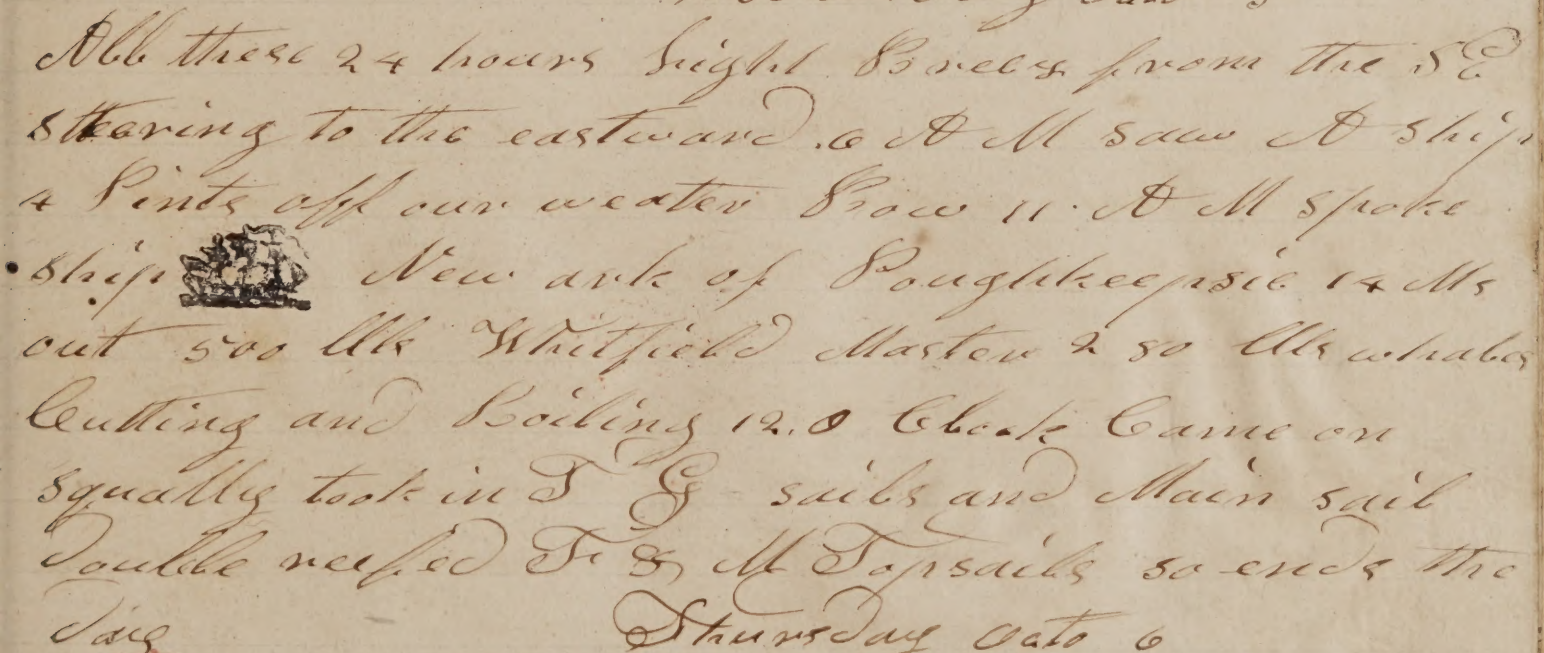 All these 24 hours light Breezs from the SE
steering to the eastward .6 A M saw A ship
4 Pints off our weater Bow 11 A M spoke
ship New ark of Poughkeepsie 14 Ms
out 500 bbls Whitfield Master 2 80 bbls whales
Cutting and Boiling 12.0 Clock Came on
squally took in T G sails and Main sail
double reefed F & M Topsails so ends the
day Thursday Octo 6